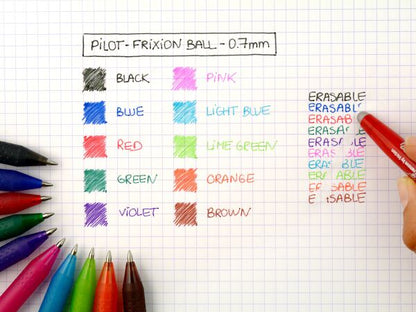 PILOT - FRIXION BALL - 0.7mm
BLACK
BLUE
RED
GREEN
VIOLET
PINK
LIGHT BLUE
LIME GREEN
ORANGE
BROWN
ERASABLE
ERASABL
ERASAB
ERASABLE
ERAS BLE
ERAS BLE
ERA BLE
ERA ABLE
ER SABLE
E SABLE